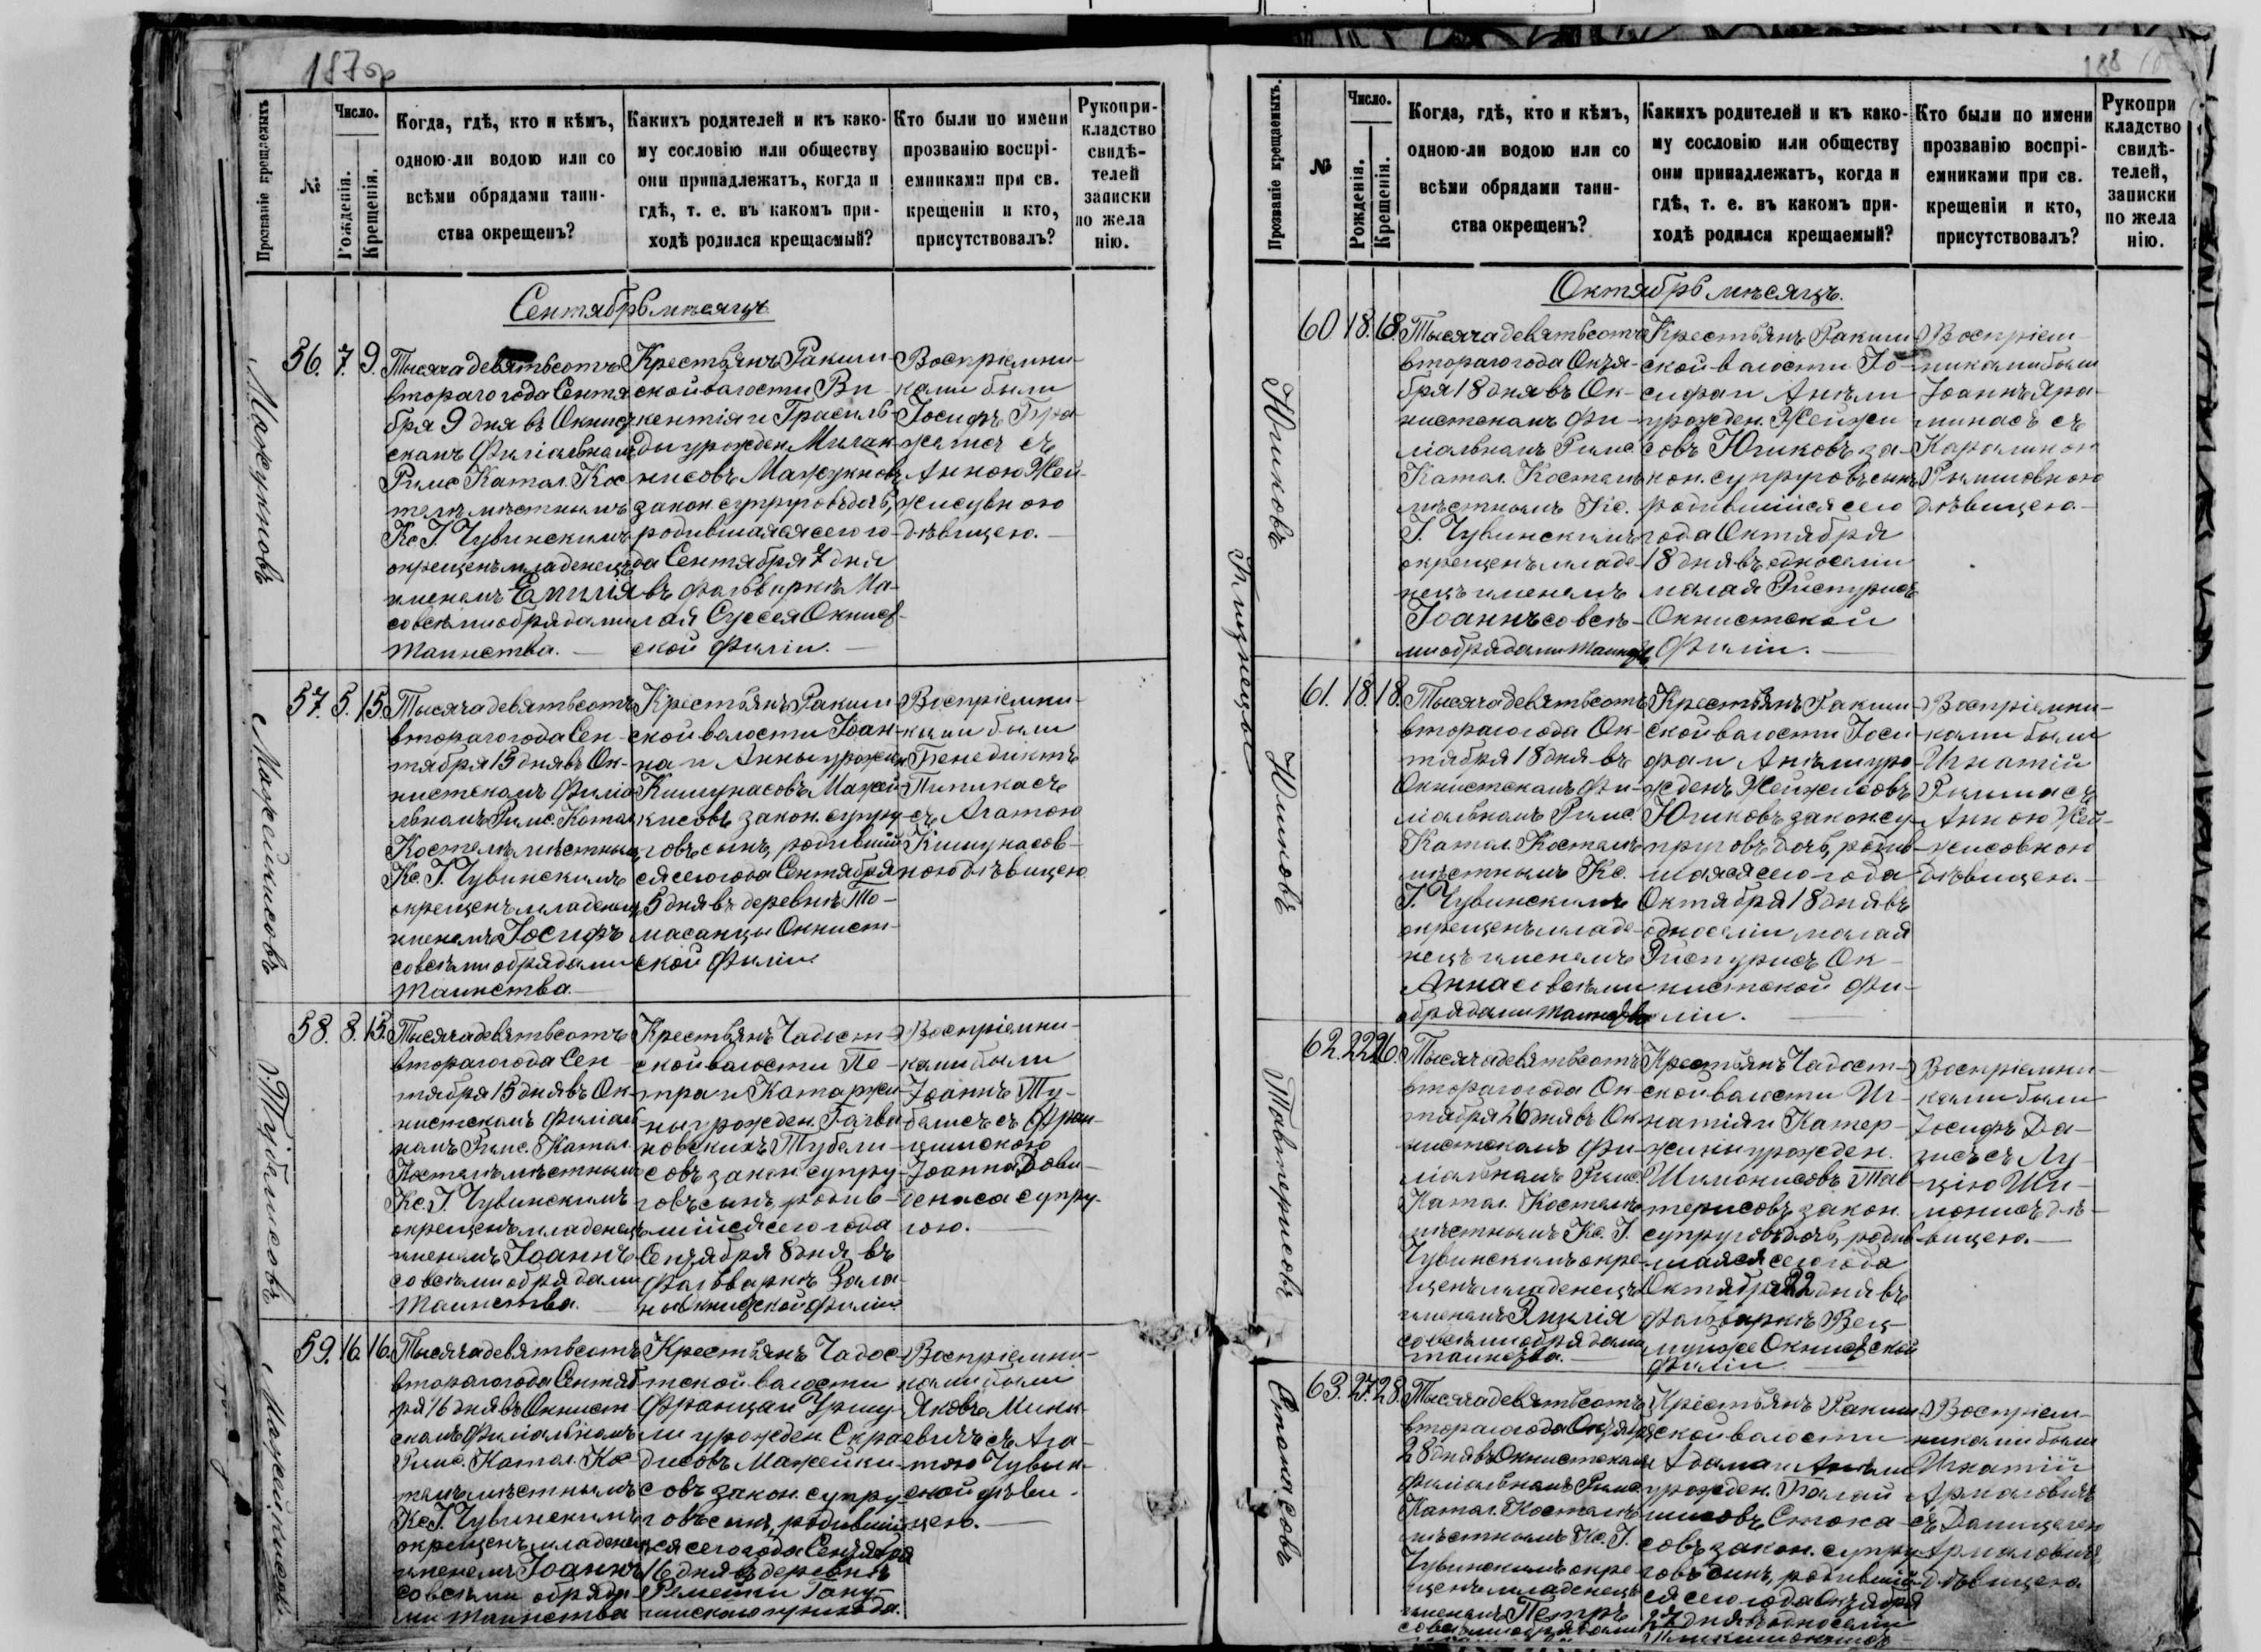 187об
Прозваніе крещаемыхъ
№
Число.
Рожденія.
Крещенія.
Когда, гдѣ, кто и кѣмъ,
одною-ли водою или со
всѣми обрядами таин-
ства окрещенъ?
Какихъ родителей и къ како-
му сословію или обществу
они принадлежатъ, когда и
гдѣ, т. е. въ какомъ при-
ходѣ родился крещаемый?
Кто были по имени
прозванію воспрі-
емниками при св.
крещеніи и кто,
присутствовалъ?
Рукопри-
кладство
свидѣ-
телей
записки
по жела
нію.
Сентябрь мѣсяцъ
56. 7. 9.
Тысяча девятьсотъ
втораго года Сентя
бря 9 дня въ Окнист
скомъ Филіальномъ
Римс Катол. Кос
телѣ мѣстнымъ
Кс. I. Чувинскимъ
окрещенъ младенецъ
именемъ Емилія
со всѣми обрядами
таинства.
Крестьянъ Ракиш
ской волости Ви
кентія и
ды урожден.
закон. супруговъ дочь,
родившаяся сего го
да Сентября 7 дня
въ фольваркѣ Ма-
лая Суссея Окнист-
ской филіи.
Воспріемни-
ками были
Іосифъ
съ
Анною Жей-
жисувною
дѣвицею.
Мажейкисовъ
57. 5. 15.
Тысяча девятьсотъ
втораго года Сен-
тября 15 дня въ Ок-
нистскомъ Филіа
льномъ Римс. Катол
Костелѣ мѣстнымъ
Кс. I. Чувинскимъ
окрещенъ младенецъ
именемъ Іосифъ
со всѣми обрядами
таинства.
Крестьянъ Ракиш
ской волости Іоан-
на и Анны урожден
Кишунасовъ Мажей-
кисовъ закон. супру-
говъ сынъ, родивший
ся сего года Сентября
5 дня въ деревнѣ То-
масанцы Окнист-
ской филіи
Воспріемни-
ками были
Бенедиктъ
Пипикасъ
съ Агатою
Кишунасов-
ною дѣвицею
Тубалисовъ
58. 8. 15.
Тысяча девятьсотъ
втораго года Сен
тября 15 дня въ Ок
нистскомъ Филіаль
номъ Римс. Катол.
Костелѣ мѣстнымъ
Кс. I. Чувинскимъ
окрещенъ младенецъ
именемъ Іоаннъ
со всѣми обрядами
таинства.
Крестьянъ Чадост-
ской волости Пе-
тра и Катаржи
ны урожден.
новскихъ Тубали-
совъ закон. супру-
говъ сынъ, родив-
шійся сего года
Сентября 8 дня въ
фольваркѣ
Окнистской филіи
Воспріемни-
ками были
Іоаннъ Ту-
балисъ съ Фран-
цишкою
Іоанна Дови-
дениса супру-
гою.
Мажейкисовъ
59. 16. 16.
Тысяча девятьсотъ
втораго года Сентяб
ря 16 дня въ Окнист
скомъ Филіальномъ
Римс. Катол. Кос
телѣ мѣстнымъ
Кс. I. Чувинскимъ
окрещенъ младенец
именемъ Іоаннъ
со всѣми обряда-
ми таинства
Крестьянъ Чадос-
тской волости
Францa и Уршу-
ли урожден. Скра
дисовъ Мажейки-
совъ закон. супру-
говъ сынъ, родивший
ся сего года Сентября
16 дня въ деревнѣ
Ремейки
прихода.
Воспріемни-
ками были
Яковъ Мицк-
евичъ съ Ага-
тою Чувин-
ской дѣви-
цею.
188
Прозваніе крещаемыхъ.
№
Число.
Рожденія.
Крещенія.
Когда, гдѣ, кто и кѣмъ,
одною-ли водою или со
всѣми обрядами таин-
ства окрещенъ?
Какихъ родителей и къ како-
му сословію или обществу
они принадлежатъ, когда и
гдѣ, т. е. въ какомъ при-
ходѣ родился крещаемый?
Кто были по имени
прозванію воспрі-
емниками при св.
крещеніи и кто,
присутствовалъ?
Рукопри
кладство
свидѣ-
телей,
записки
по жела
нію.
Октябрь мѣсяцъ.
Близнецы
Юшковъ
60. 18. 18.
Тысяча девятьсотъ
втораго года Октя-
бря 18 дня въ Ок-
нистскомъ Фи-
ліальномъ Римс
Катол. Костелѣ
мѣстнымъ Кс.
I. Чувинскимъ
окрещенъ младе-
нецъ именемъ
Іоаннъ со всѣ-
ми обрядами таинства
Крестьянъ Ракиш
ской волости Іо-
сифа и Анѣли
урожден. Жейжи
совъ Юшковъ за-
кон. супруговъ сынъ
родившійся сего
года Октября
18 дня въ односеліи
малая
Окнистской
Филіи.
Воспріем-
никами были
Іоаннъ
съ
Каролиною
дѣвицею.
Юшковъ
61. 18. 18.
Тысяча девятьсотъ
втораго года Ок-
тября 18 дня въ
Окнистскомъ Фи-
ліальномъ Римс.
Катол. Костелѣ
мѣстнымъ Кс.
I. Чувинскимъ
окрещенъ младе-
нецъ именемъ
Анна со всѣми
обрядами таинства
Крестьянъ Ракиш-
ской волости Іоси
фа и Анѣли уро-
жденъ Жейжисовъ
Юшковъ закон су-
пруговъ дочь, родив-
шаяся сего года
Октября 18 дня въ
односеліи малая
Ок-
нистской фи-
ліи.
Воспріемни-
ками были
Игнатій
съ
Анною Жей-
жисовною
дѣвицею.
Тавтерисовъ
62. 22. 26.
Тысяча девятьсотъ
втораго года Ок-
тября 26 дня въ Ок
нистскомъ Фи-
ліальномъ Римс.
Катол. Костелѣ
мѣстнымъ Кс. I.
Чувинскимъ окре-
щенъ младенецъ
именемъ Эмилія
со всѣми обрядами
таинства.
Крестьянъ Чадост-
ской волости Иг-
натія и Катер-
жини урожден.
Шимонисовъ Тав-
терисовъ закон.
супруговъ дочь, родив-
шаяся сего года
Октября 22 дня въ
фольваркѣ
Окнистской
филіи
Воспріемни-
ками были
Іосифъ
съ Лу-
цією Ши-
монисъ дѣ-
вицею.
Стокасовъ
63. 27. 28.
Тысяча девятьсотъ
втораго года Октября
28 дня въ Окнистскомъ
Филіальномъ Римс.
Катол. Костелѣ
мѣстнымъ Кс. I.
Чувинскимъ окре-
щенъ младенецъ
именемъ Петръ
со всѣми обрядами
Крестьянъ Ракиш
ской волости
Адама и Анѣли
урожден.
Стока-
совъ закон. супру
говъ сынъ, родивший
ся сего года Октября
27 дня въ односеліи
Воспріем-
никами были
Игнатій
Ярмаловичъ
съ
Ярмаловичъ
дѣвицею